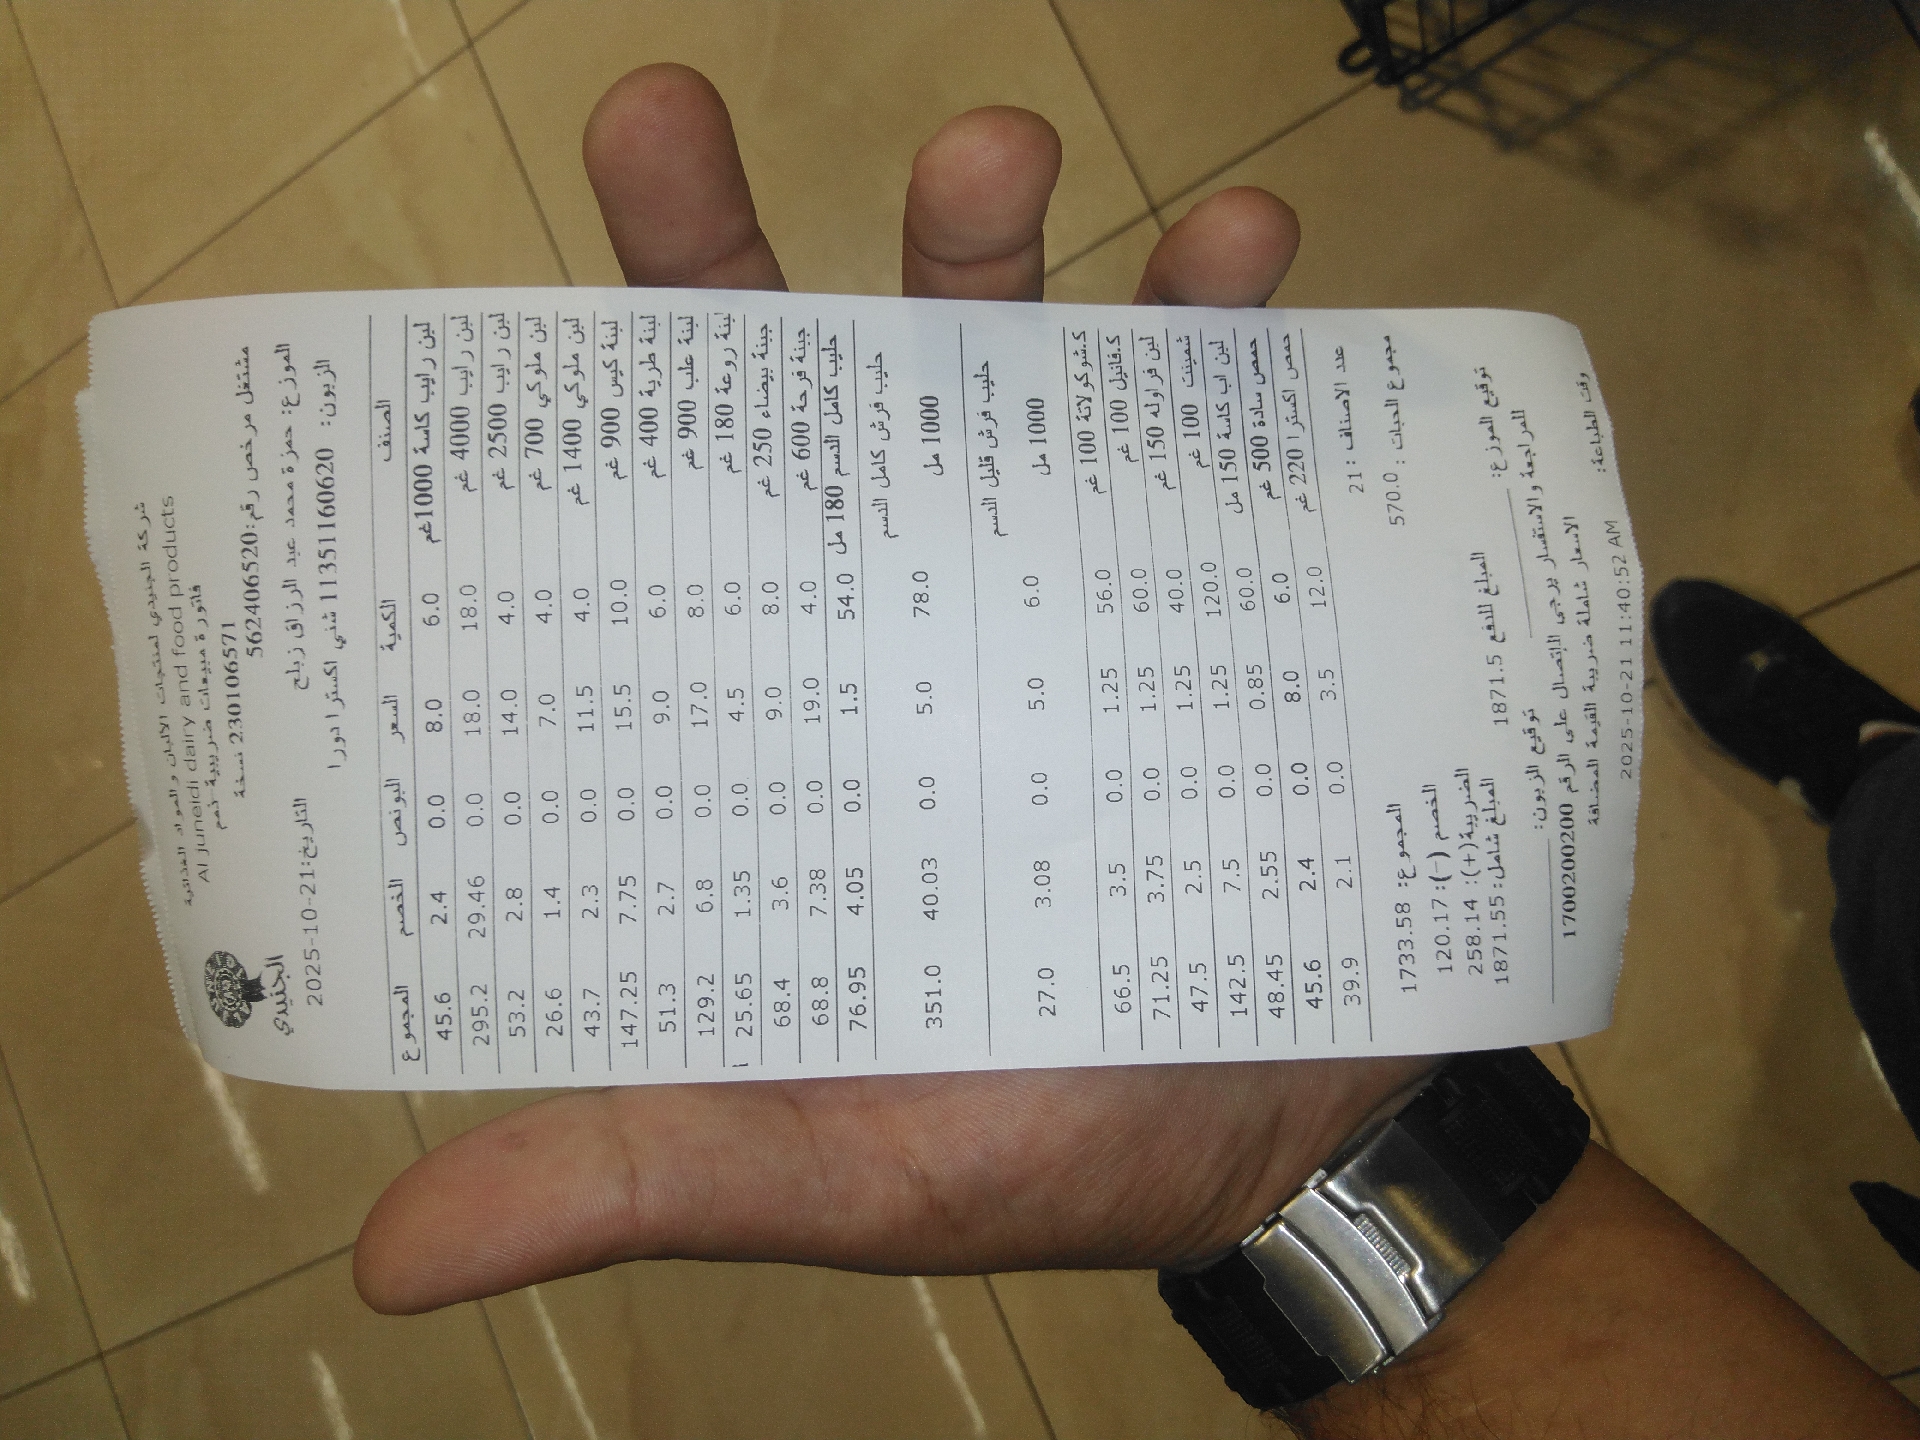 شركة الجنيدي لمنتجات الالبان والمواد الغذائية
Al juneidi dairy and food products
فاتورة مبيعات ضريبية-ذمم
نسخة 230106571
مشتغل مرخص رقم:562406520
الجنيدي
الموزع: حمزة محمد عبد الرزاق زبلح
التاريخ:2025-10-21
الزبون: 11351160620 شني اكسترا دورا
الصنف الكمية السعر البونص الخصم المجموع
لبن رايب كاسة 1000غم 6.0 8.0 0.0 2.4 45.6
لبن رايب 4000 غم 18.0 18.0 0.0 29.46 295.2
لبن رايب 2500 غم 4.0 14.0 0.0 2.8 53.2
لبن ملوكي 700 غم 4.0 7.0 0.0 1.4 26.6
لبن ملوكي 1400 غم 4.0 11.5 0.0 2.3 43.7
لبنة كيس 900 غم 10.0 15.5 0.0 7.75 147.25
لبنة طرية 400 غم 6.0 9.0 0.0 2.7 51.3
لبنة علب 900 غم 8.0 17.0 0.0 6.8 129.2
لبنة روعة 180 غم 6.0 4.5 0.0 1.35 25.65
جبنة بيضاء 250 غم 8.0 9.0 0.0 3.6 68.4
جبنة فرحة 600 غم 4.0 19.0 0.0 7.38 68.8
حليب كامل الدسم 180 مل 54.0 1.5 0.0 4.05 76.95
حليب فرش كامل الدسم
1000 مل 78.0 5.0 0.0 40.03 351.0
حليب فرش قليل الدسم
1000 مل 6.0 5.0 0.0 3.08 27.0
ك.شوكولاتة 100 غم 56.0 1.25 0.0 3.5 66.5
ك.فانيل 100 غم 60.0 1.25 0.0 3.75 71.25
لبن فراوله 150 غم 40.0 1.25 0.0 2.5 47.5
شمينت 100 غم 120.0 1.25 0.0 7.5 142.5
لبن اب كاسة 150 مل 60.0 0.85 0.0 2.55 48.45
حمص سادة 500 غم 6.0 8.0 0.0 2.4 45.6
حمص اكسترا 220 غم 12.0 3.5 0.0 2.1 39.9
عدد الاصناف : 21
مجموع الحبات : 570.0
المجموع: 1733.58
الخصم (-): 120.17
الضريبة(+): 258.14
المبلغ للدفع 1871.5
المبلغ شامل: 1871.55
توقيع الموزع:
توقيع الزبون:
للمراجعة والاستفسار يرجى الاتصال على الرقم 1700200200
الاسعار شاملة ضريبة القيمة المضافة
وقت الطباعة:
2025-10-21 11:40:52 AM